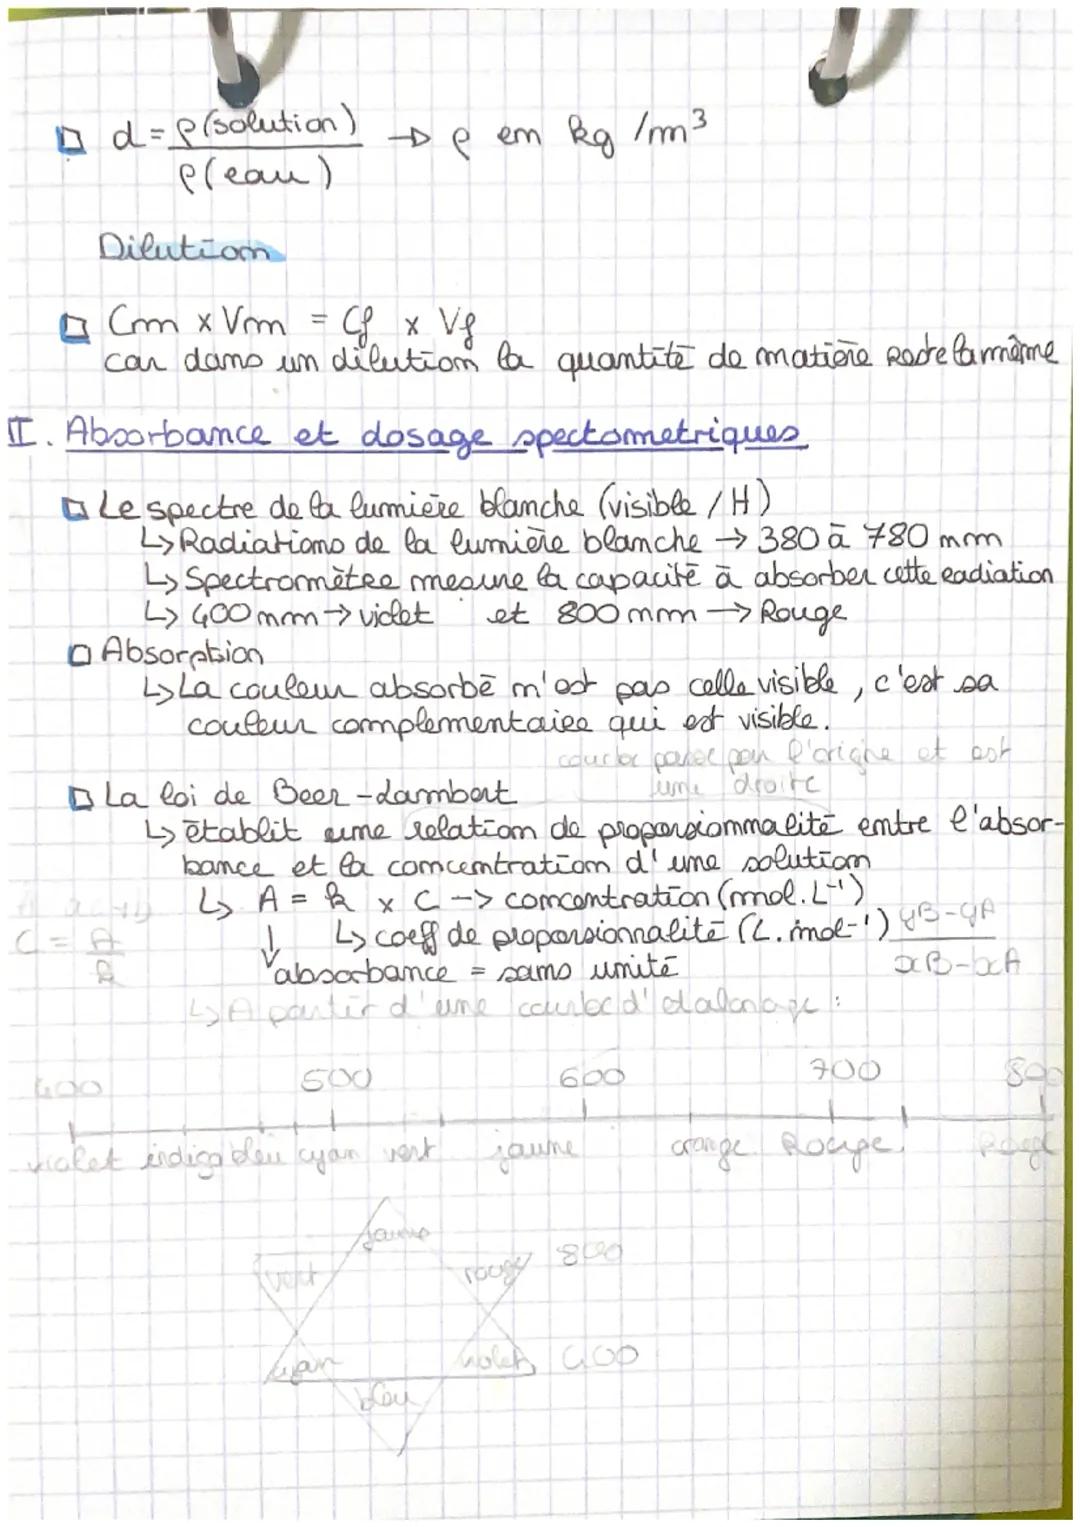 d = ρ(solution) / ρ(eau) → ρ en kg /m³
Dilution
Cm x Vm = Cf x Vf
car dans un dilution la quantité de matière reste la même
II. Absorbance et dosage spectometriques
Le spectre de la lumière blanche (visible / H)
↳ Radiations de la lumière blanche → 380 à 780 nm
↳ Spectromètre mesure la capacité à absorber cette radiation
↳ 400 nm → violet et 800 nm → Rouge
Absorption
↳ La couleur absorbé n'est pas celle visible, c'est sa
couleur complementaire qui est visible.
courbe passe par l'origine et est
une droite
La loi de Beer-Lambert
↳ établit une relation de proporsionnalité entre l'absor-
bance et la concentration d'une solution
↳ A = k x C -> concentration (mol.L⁻¹)
C = A / k
↓ ↳ coeff de proporsionnalité (L.mol⁻¹) yB-yA / xB-xA
absorbance = sans unité
↳ A partir d'une courbe d'étalonage :
400 500 600 700 800
violet indigo bleu cyan vert jaune orange Rouge Rouge
jaune
vert rouge 800
cyan violet 400
bleu